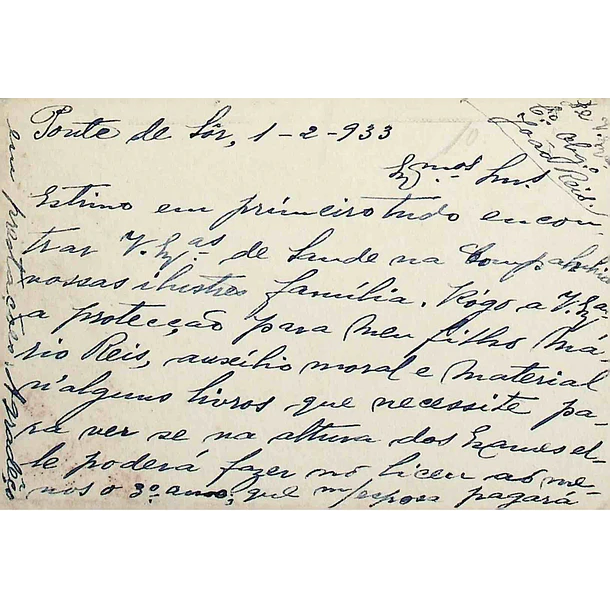 Ponte de Sôr, 1-2-933
Ex.mos Snrs.
Estimo em primeiro tudo encon
trar V. Ex.as de saude na companhia
vossas ilustres família. Rógo a V. Ex.as
a protecção para meu filho Má-
rio Reis, auxílio moral e material
n'alguns livros que necessite pa-
ra ver se na altura dos Exames el-
le poderá fazer no liceu ao me-
nos o 3º ano, que m/esposa pagará
em prestações. Agradeço
De V. Ex.as
obgº
João Reis